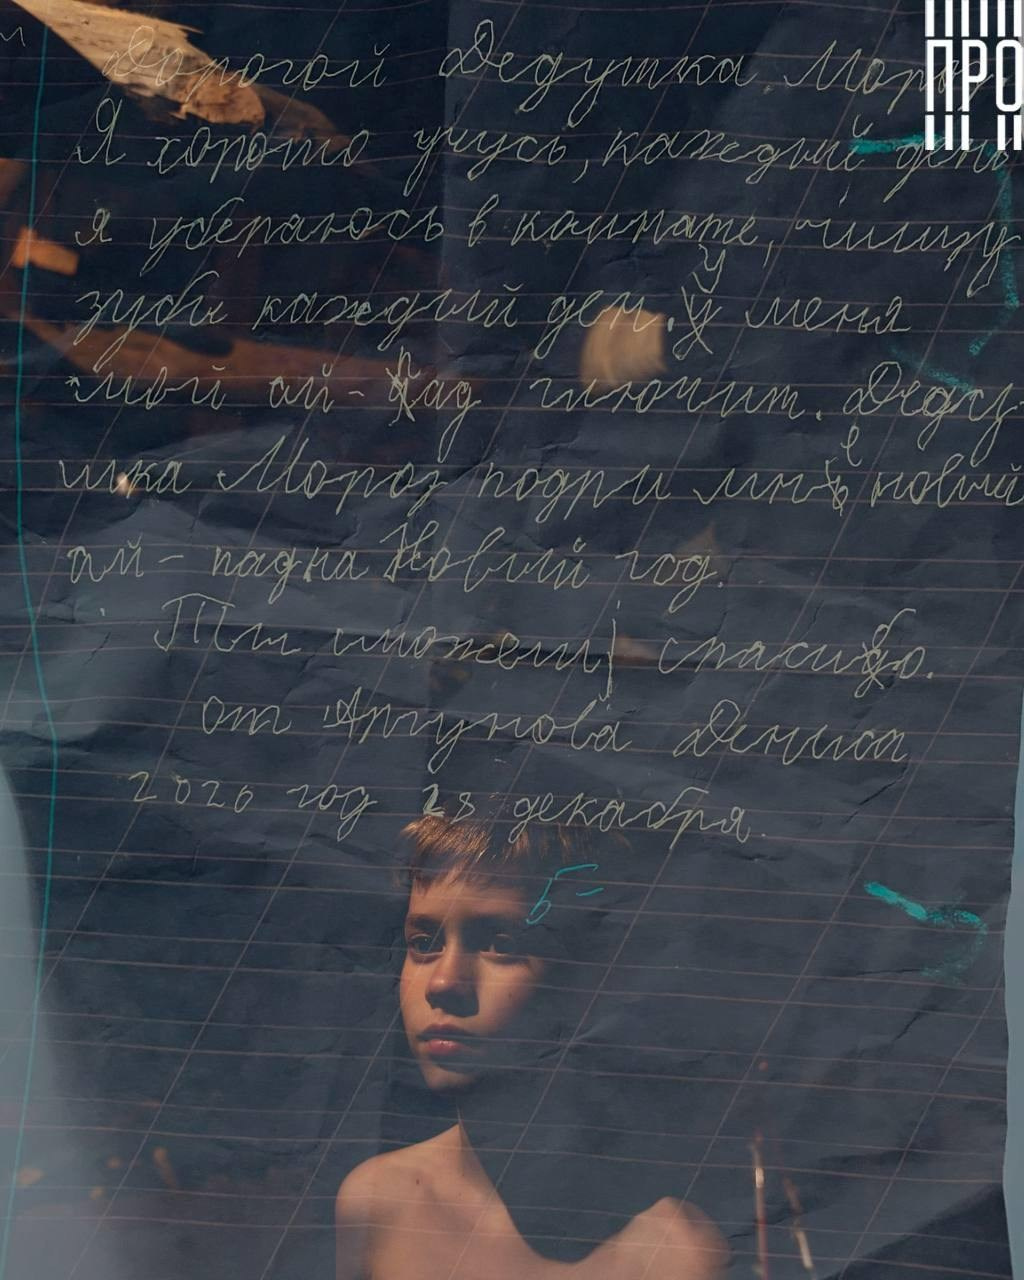 ПРО
Дорогой Дедушка Мороз
Я хорошо учусь, каждый день
я убераюсь в камнате, чищу
зубы каждый ден. У меня
мой ай-пад глючит. Деду-
шка Мороз подри мне новый
ай-пад на Новый год.
Ты сможеш, спасибо.
от Аргунова Дениса
2020 год 28 декабря.